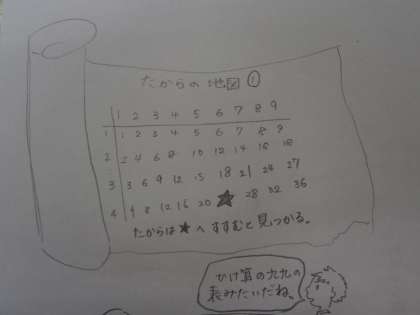 たからの地図①
1 2 3 4 5 6 7 8 9
1 1 2 3 4 5 6 7 8 9
2 2 4 6 8 10 12 14 16 18
3 3 6 9 12 15 18 21 24 27
4 4 8 12 16 20 ★ 28 32 36
たからは★へすすむと見つかる。
かけ算の九九の
表みたいだね。